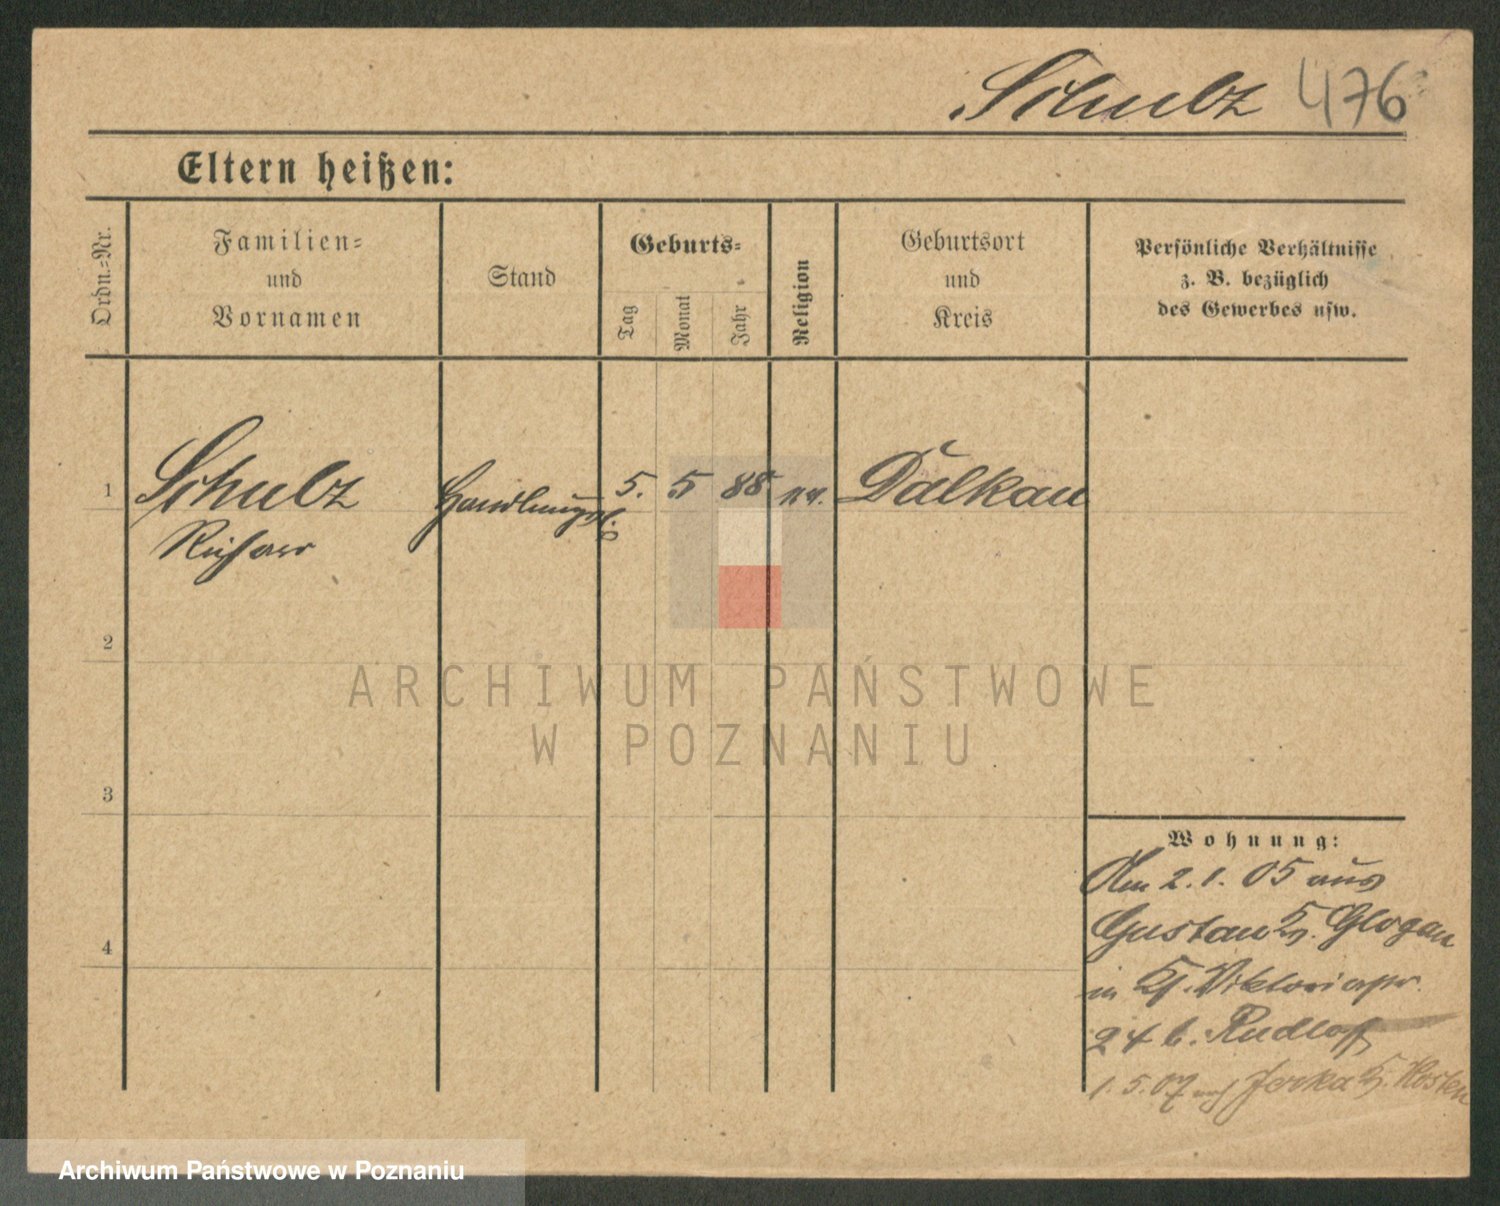 Schulz 476
Eltern heißen:
Ordn.-Nr.
Familien-
und
Vornamen
Stand
Geburts-
Tag
Monat
Jahr
Religion
Geburtsort
und
Kreis
Persönliche Verhältnisse
z. B. bezüglich
des Gewerbes usw.
1
Schulz
Richard
5. 5 88
Dalkau
2
3
4
Wohnung:
Am 2. 1. 05 aus
Gustau Kr. Glogau
in
24 b. Rudloff
1. 5. 07 nach Jerka Kr. Kosten
ARCHIWUM PAŃSTWOWE
W POZNANIU
Archiwum Państwowe w Poznaniu